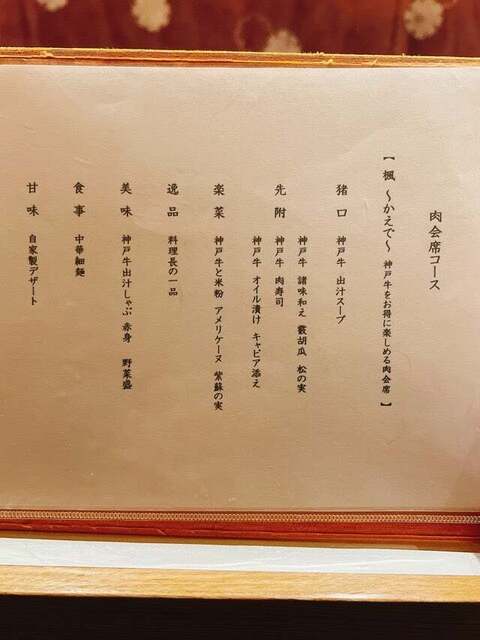 肉会席コース
【 楓 ～かえで～ 神戸牛をお得に楽しめる肉会席 】
猪口 神戸牛 出汁スープ
先附 神戸牛 諸味和え 叢胡瓜 松の実
神戸牛 肉寿司
神戸牛 オイル漬け キャビア添え
楽菜 神戸牛と米粉 アメリケーヌ 紫蘇の実
逸品 料理長の一品
美味 神戸牛出汁しゃぶ 赤身 野菜盛
食事 中華細麺
甘味 自家製デザート